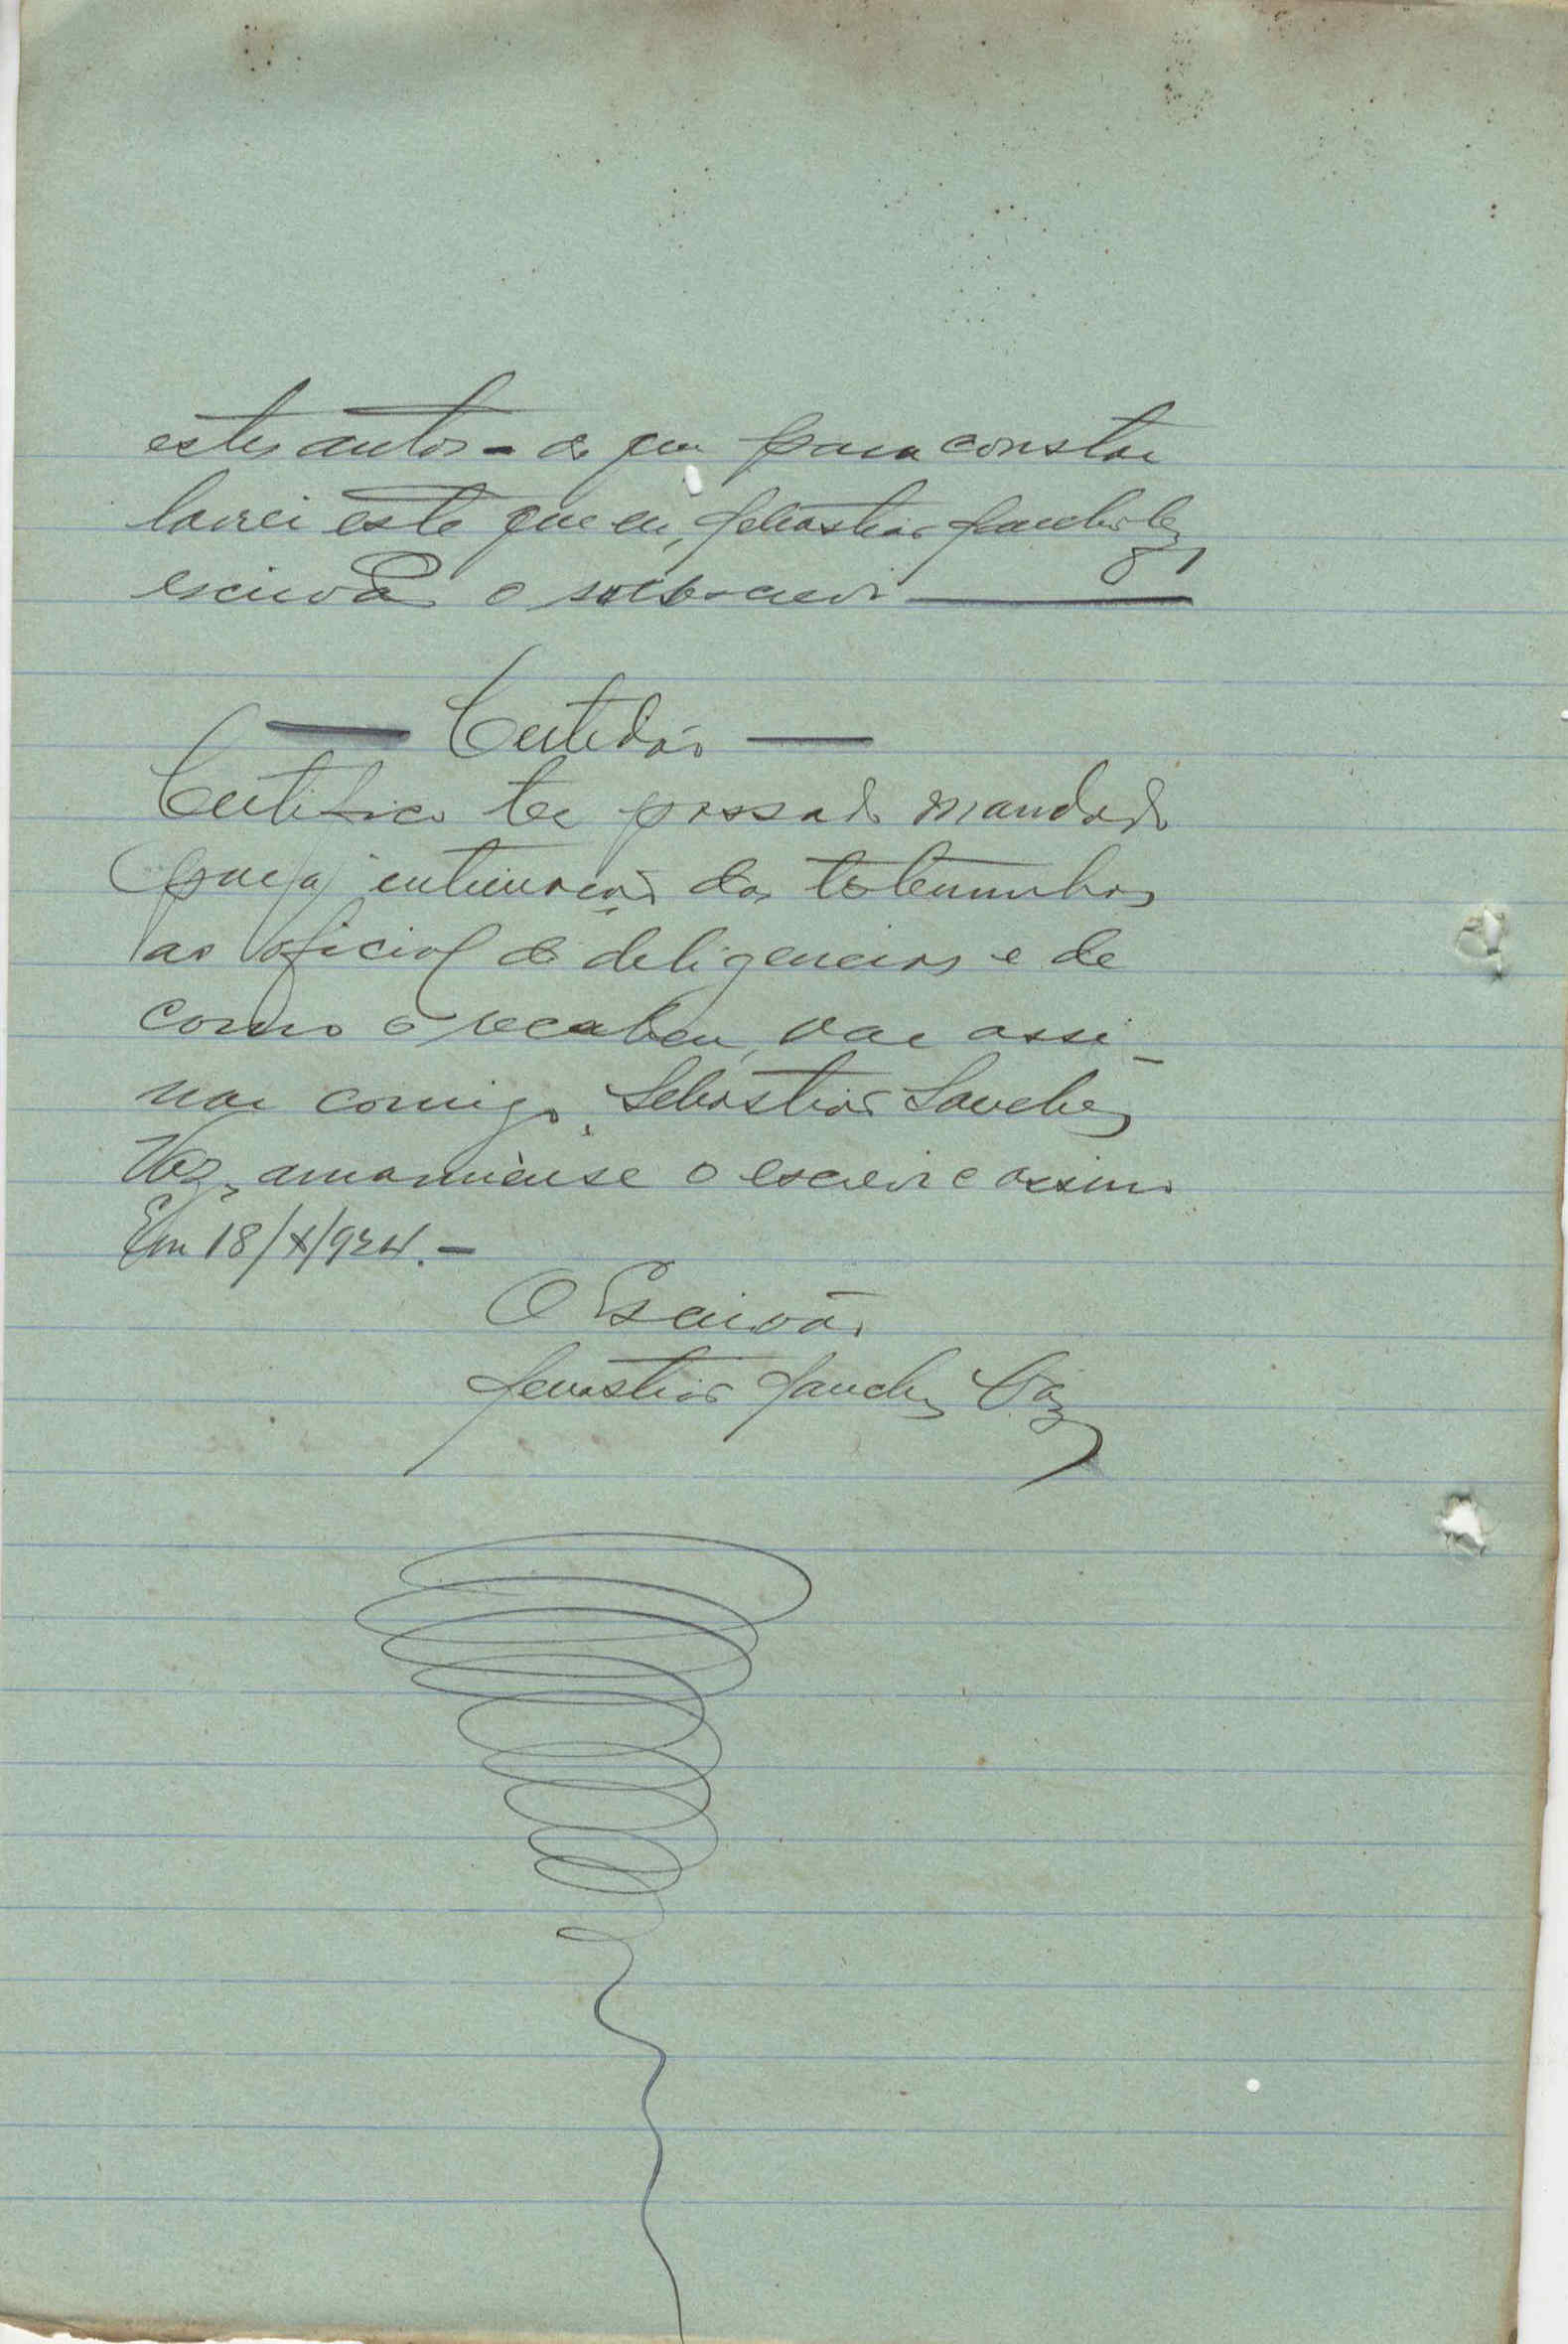 estes autos - do que para constar
lavrei este que eu, Sebastião Sanches Vaz
escrivão o subscrevi
— Certidão —
Certifico ter passado mandado
para intimação das testemunhas
ao oficial de deligencias e de
como o recebeu, vae assi-
nar comigo, Sebastião Sanches
Vaz, amanuense o escrevi e assino
Em 18/X/934. -
O Escrivão
Sebastião Sanches Vaz